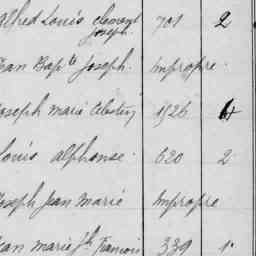 Alfred Louis Clement
Joseph. 701 2
Jean Bapte Joseph. Impropre.
Joseph Marie Célestin 1526 4
Louis Alphonse. 620 2
Joseph Jean Marie Impropre
Jean Marie Jh Francois 339 1.